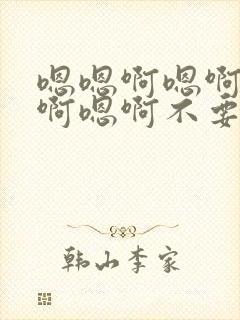 嗯嗯啊嗯啊
啊嗯啊不要
韩山李家